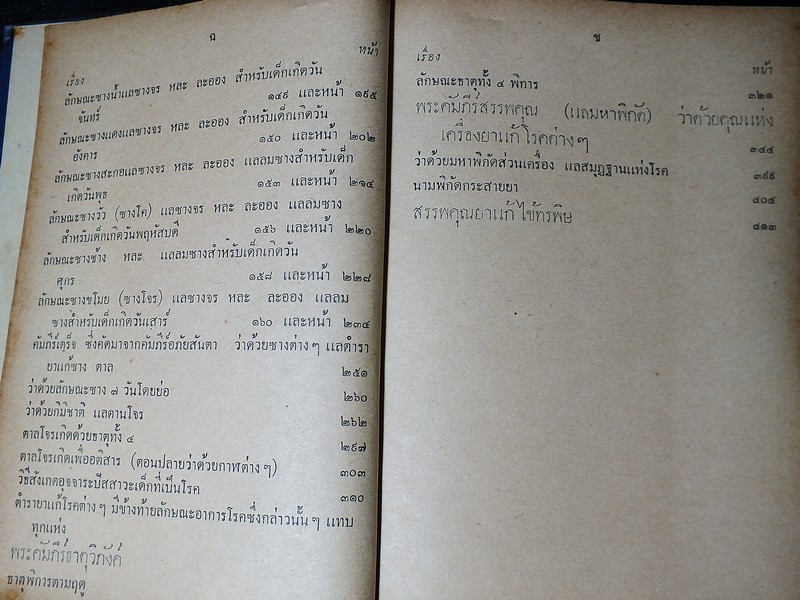 ฉ
เรื่อง หน้า
ลักษณะซางน้ำแลซางจร หละ ละออง สำหรับเด็กเกิดวัน
จันทร์ ๑๔๙ และหน้า ๑๙๕
ลักษณะซางแดงแลซางจร หละ ละออง สำหรับเด็กเกิดวัน
อังคาร ๑๕๐ และหน้า ๒๐๒
ลักษณะซางสะกอแลซางจร หละ ละออง แลลมซางสำหรับเด็ก
เกิดวันพุธ ๑๕๓ และหน้า ๒๑๔
ลักษณะซางวัว (ซางโค) แลซางจร หละ ละออง แลลมซาง
สำหรับเด็กเกิดวันพฤหัสบดี ๑๕๖ และหน้า ๒๒๐
ลักษณะซางช้าง หละ แลลมซางสำหรับเด็กเกิดวัน
ศุกร ๑๕๘ และหน้า ๒๒๘
ลักษณะซางขโมย (ซางโจร) แลซางจร หละ ละออง แลลม
ซางสำหรับเด็กเกิดวันเสาร์ ๑๖๐ และหน้า ๒๓๔
คัมภีร์เตร็จ ซึ่งคัดมาจากคัมภีร์อภัยสันตา ว่าด้วยซางต่างๆ แลตำรา
ยาแก้ซาง ตาล ๒๕๑
ว่าด้วยลักษณะซาง ๘ วันโดยย่อ ๒๖๐
ว่าด้วยกิมิชาติ แลตานโจร ๒๖๒
ตาลโจรเกิดด้วยธาตุทั้ง ๔ ๒๙๗
ตาลโจรเกิดเพื่ออติสาร (ตอนปลายว่าด้วยกาฬต่างๆ) ๓๐๓
วิธีสังเกตอุจจาระปัสสาวะเด็กที่เป็นโรค ๓๑๐
ตำรายาแก้โรคต่างๆ มีข้างท้ายลักษณะอาการโรคซึ่งกล่าวนั้นๆ แทบ
ทุกแห่ง
พระคัมภีร์ธาตุวิภังค์
ธาตุพิการตามฤดู
ช
เรื่อง หน้า
ลักษณะธาตุทั้ง ๔ พิการ ๓๒๑
พระคัมภีร์สรรพคุณ (แลมหาพิกัด) ว่าด้วยคุณแห่ง
เครื่องยาแก้โรคต่างๆ ๓๔๔
ว่าด้วยมหาพิกัดส่วนเครื่อง แลสมุฏฐานแห่งโรค ๓๙๙
นามพิกัดกระสายยา ๔๐๔
สรรพคุณยาแก้ไข้ทรพิษ ๔๑๓